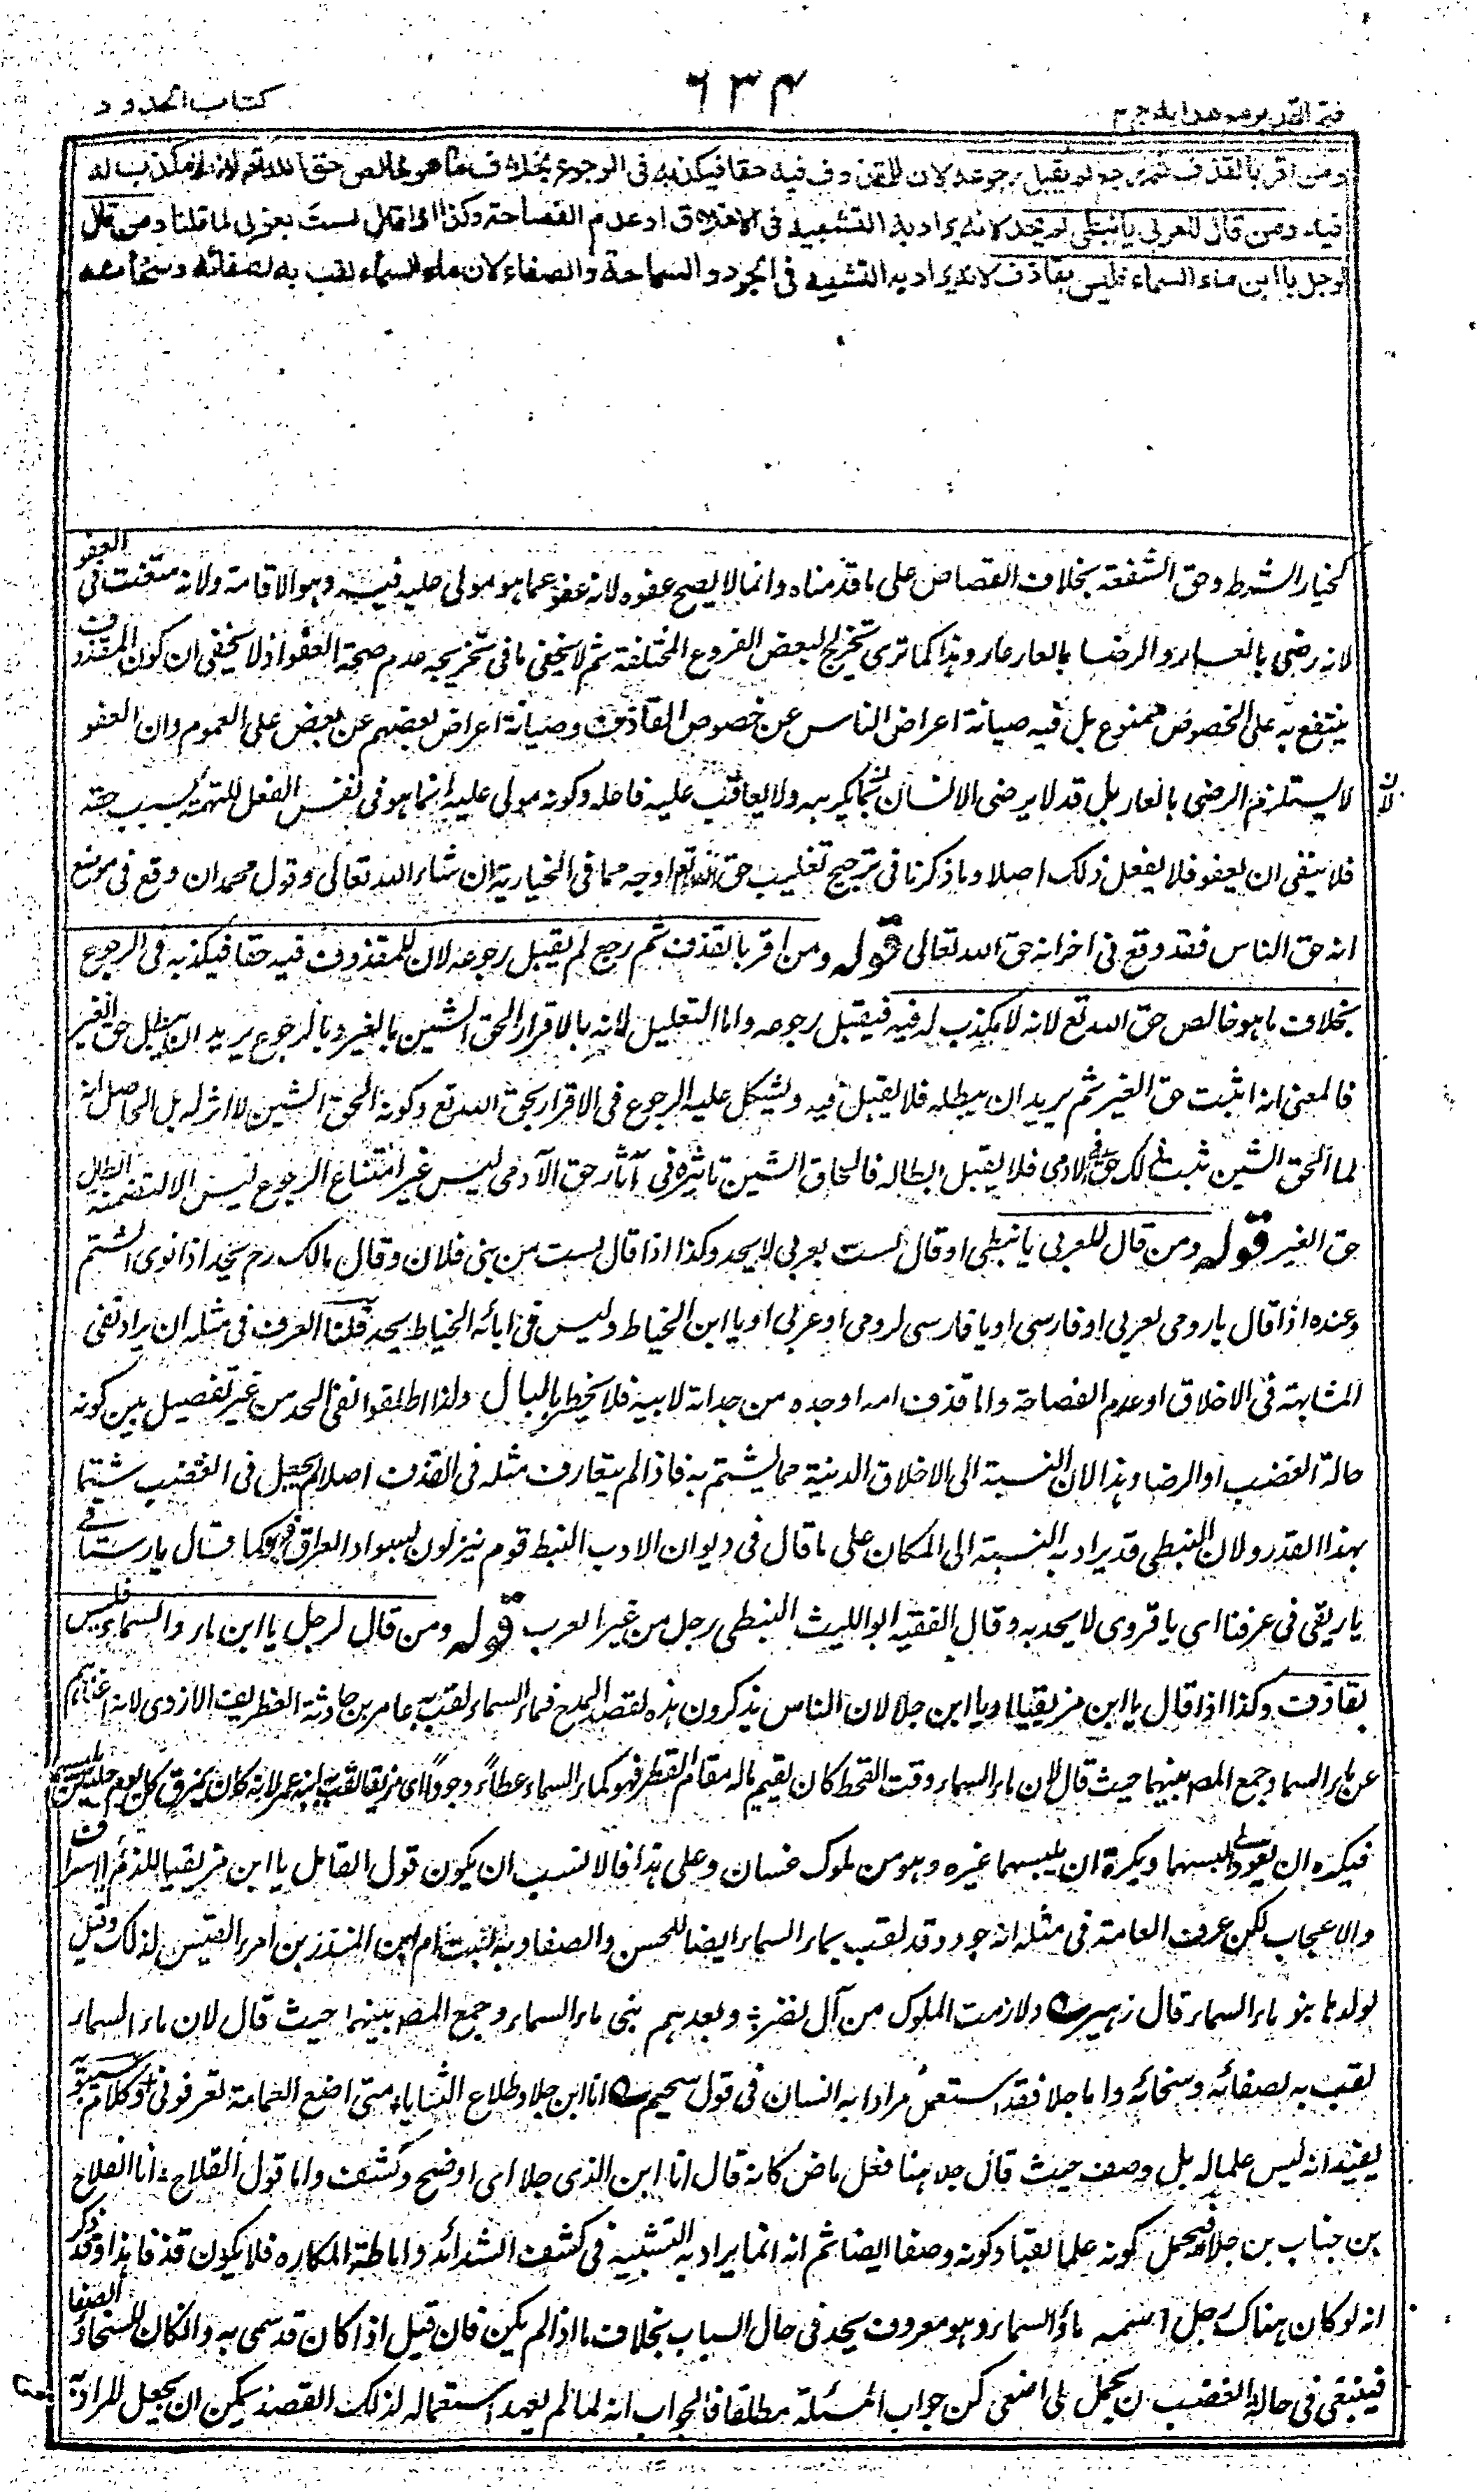 فتح القدير مع هدايه ج ٢
٦٣٤
كتاب الحدود
ومن اقر بالقذف ثم رجع لم يقبل رجوعه لان للمقذوف فيه حقا فيكذبه فى الرجوع بخلاف ما هو خالص حق الله تعالى لانه لا مكذب له
فيه ومن قال للعربى يا نبطى لم يحد لانه يراد به التشبيه فى الاخلاق او عدم الفصاحة وكذا اذا قال لست بعربى لما قلنا ومن قال
لرجل يا ابن ماء السماء فليس بقاذف لانه يراد به التشبيه فى الجود والسماحة والصفاء لان ماء السماء لقب به لصفائه وسخائه
كخيار الشرط وحق الشفعة بخلاف القصاص على ما قدمناه وانما لا يصح عفوه لانه عفو عما هو مولى عليه فيه وهو الاقامة ولانه متعنت فى العفو
لانه رضى بالعار والرضا بالعار عار وهذا كما ترى تخريج لبعض الفروع المختلفة ثم لا يخفى ما فى تخريجه عدم صحة العفو اذ لا يخفى ان كون المقذوف
ينتفع به على الخصوص ممنوع بل فيه صيانة اعراض الناس عن خصوص القاذف وصيانة اعراض بعضهم عن بعض على العموم وان العفو
لا يستلزم الرضى بالعار بل قد لا يرضى الانسان بما يكرهه ولا يعاقب عليه فاعله وكونه مولى عليه انما هو فى نفس الفعل للتهمة بسبب حقه
فلا ينفى ان يعفو فلا يفعل ذلك اصلا وما ذكرنا فى ترجيح تغليب حق الله تعالى اوجه مما فى الخبازية ان شاء الله تعالى وقول محمد ان وقع فى موضع
انه حق الناس فقد وقع فى اخر انه حق الله تعالى قوله ومن اقر بالقذف ثم رجع لم يقبل رجوعه لان للمقذوف فيه حقا فيكذبه فى الرجوع
بخلاف ما هو خالص حق الله تع لانه لا مكذب له فيه فيقبل رجوعه واما التعليل لانه بالاقرار الحق الشين بالغير وبالرجوع يريد ان يبطل حق الغير
فالمعنى انه اثبت حق الغير ثم يريد ان يبطله فلا يقبل فيه ويشكل عليه الرجوع فى الاقرار بحق الله تع وكونه الحق الشين لا اثر له بل الحاصل انه
لما الحق الشين ثبت فى ذلك حق الادمى فلا يقبل ابطاله فالحاق الشين تاثيره فى اثار حق الآدمى ليس غير امتناع الرجوع ليس الا لتضمنه ابطال
حق الغير قوله ومن قال للعربى يا نبطى او قال لست بعربى لا يحد وكذا اذا قال لست من بنى فلان وقال مالك رح يحد اذا نوى الشتم
وعنده اذا قال يا رومى لعربى او فارسى او يا فارسى لرومى او عربى او يا ابن الخياط وليس فى ابائه الخياط يحد قلنا العرف فى مثله ان يراد نفى
المشابهة فى الاخلاق او عدم الفصاحة واما قذف امه او جدة من جداته لابيه فلا يخطر بالبال ولذا اطلقوا نفى الحد من غير تفصيل بين كونه
حالة الغضب او الرضا وهذا لان النسبة الى الاخلاق الدنية مما يشتم به فاذا لم يتعارف مثله فى القذف اصلا لم يجعل فى الغضب شيتا
بهذا القدر ولان النبطى قد يراد به النسبة الى المكان على ما قال فى ديوان الادب النبط قوم ينزلون بسواد العراق فهو كما قال يا رستاقى
يا ريفى فى عرفنا اى يا قروى لا يحد به وقال الفقيه ابو الليث النبطى رجل من غير العرب قوله ومن قال لرجل يا ابن ماء السماء فليس
بقاذف وكذا اذا قال يا ابن مزيقيا او يا ابن جلا لان الناس يذكرون هذه لقصد المدح فماء السماء لقب به عامر بن حارثة الغطريف الازدى لانه
وجمع المصـ بينهما حيث قال لان ماء السماء وقت القحط كان يقيم ماله مقام القطر فهو كماء السماء عطاءً وجوداً
فيكره ان يعود الى لبسهما ويكره ان يلبسهما غيره وهو من ملوك غسان وعلى هذا فالانسب ان يكون قول القائل يا ابن مزيقيا للذم بالاسراف
والاعجاب لكن عرف العامة فى مثله انه جود وقد لقب بماء السماء ايضا للحسن والصفا وبه لقبت ام ابن المنذر بن امرء القيس لذلك وقيل
لولدها بنو ماء السماء قال زهير ولازمت الملوك من آل نضر وبعدهم بنى ماء السماء وجمع المصـ بينهما حيث قال لان ماء السماء
لقب به لصفائه وسخائه واما جلا فقد استعمل مرادا به انسان فى قول سحيم انا ابن جلا وطلاع الثنايا متى اضع العمامة تعرفونى وكلام سيبويه
يفيد انه ليس علما له بل وصف حيث قال جلا هنا فعل ماض كانه قال انا ابن الذى جلا اى اوضح وكشف واما قول القلاخ انا القلاخ
بن جناب بن جلا فيحتمل كونه علما لقبا وكونه وصفا ايضا ثم انه انما يراد به التشبيه فى كشف الشدائد واماطة المكاره فلا يكون قذفا هذا وقد ذكر
انه لو كان هناك رجل اسمه ماء السماء وهو معروف يحد فى حال السباب بخلاف ما اذا لم يكن فان قيل اذا كان قد سمى به وان كان للسخاء والصفا
فينبغى فى حالة الغضب ان يحمل على النفى لكن جواب المسئلة مطلقا فالجواب انه لما لم يعهد استعماله لذلك القصد يمكن ان يجعل المراد به